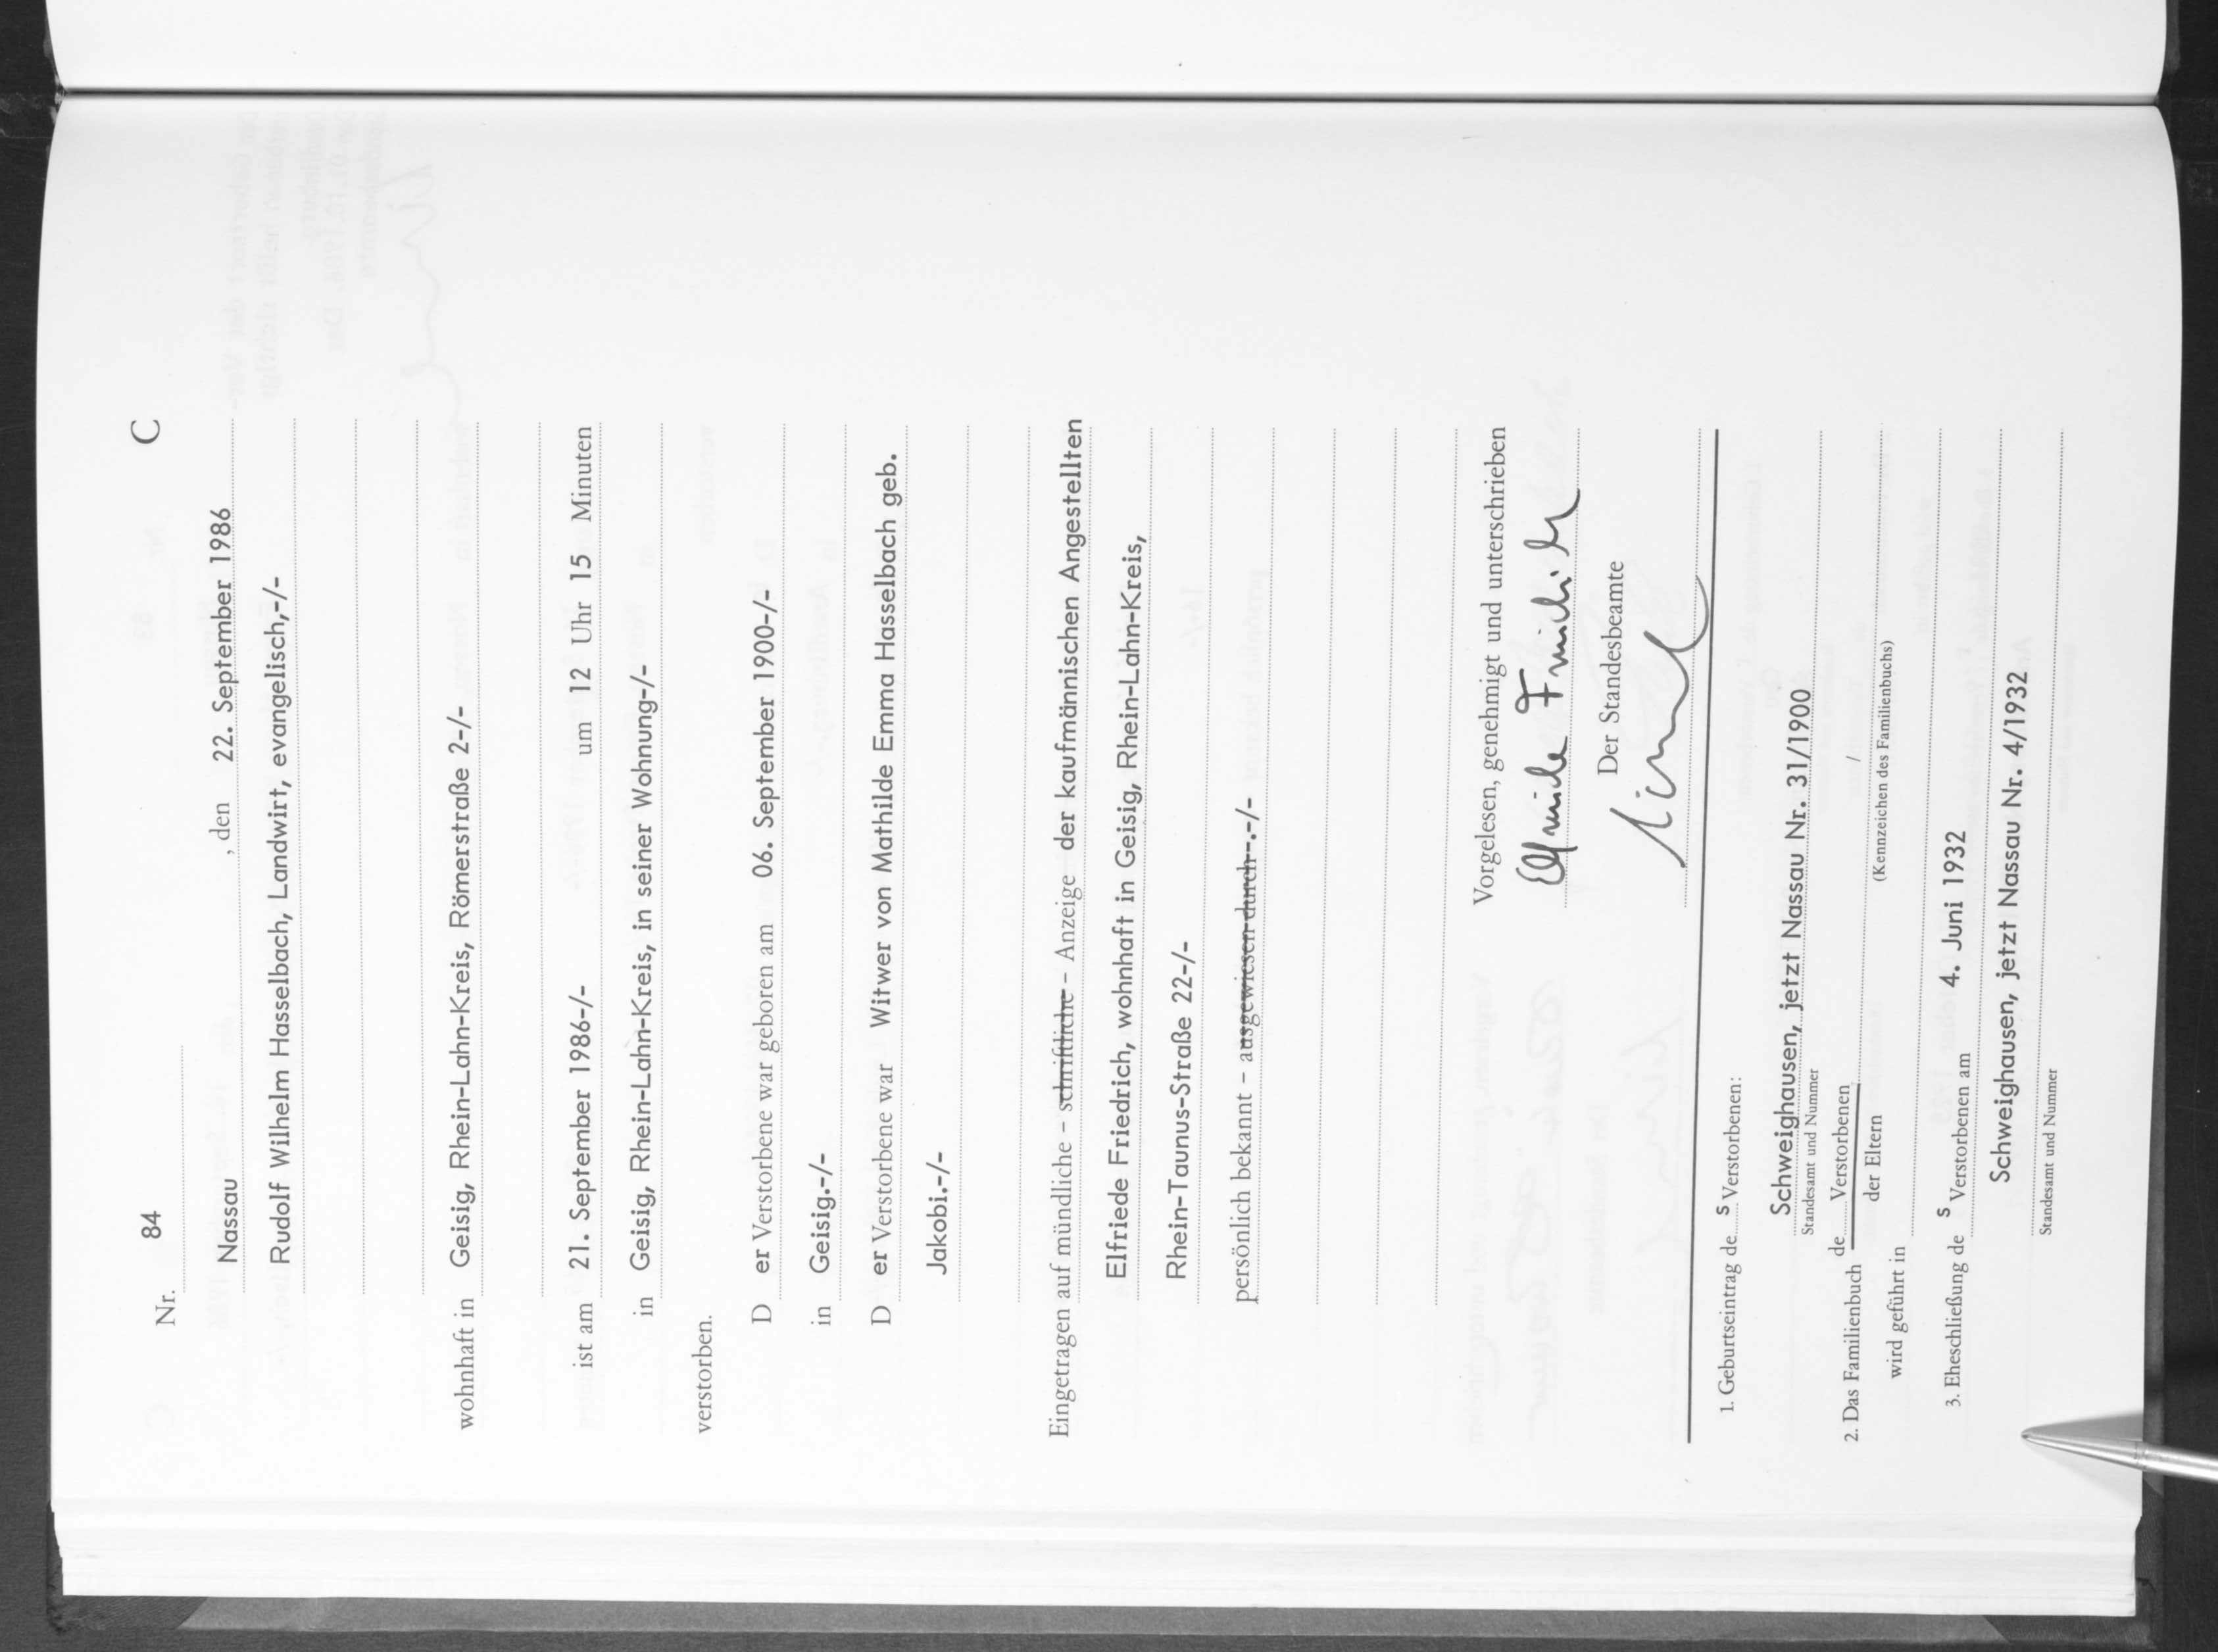 C
Nr. 84
Nassau , den 22. September 1986
Rudolf Wilhelm Hasselbach, Landwirt, evangelisch,-/-
wohnhaft in Geisig, Rhein-Lahn-Kreis, Römerstraße 2-/-
ist am 21. September 1986-/- um 12 Uhr 15 Minuten
in Geisig, Rhein-Lahn-Kreis, in seiner Wohnung-/-
verstorben.
D er Verstorbene war geboren am 06. September 1900-/-
in Geisig.-/-
D er Verstorbene war Witwer von Mathilde Emma Hasselbach geb.
Jakobi.-/-
Eingetragen auf mündliche – schriftliche – Anzeige der kaufmännischen Angestellten
Elfriede Friedrich, wohnhaft in Geisig, Rhein-Lahn-Kreis,
Rhein-Taunus-Straße 22-/-
persönlich bekannt – ausgewiesen durch-.-/-
Vorgelesen, genehmigt und unterschrieben
Elfriede Friedrich
Der Standesbeamte
1. Geburtseintrag de s Verstorbenen:
Schweighausen, jetzt Nassau Nr. 31/1900
Standesamt und Nummer
2. Das Familienbuch de Verstorbenen /
der Eltern (Kennzeichen des Familienbuchs)
wird geführt in
3. Eheschließung de s Verstorbenen am 4. Juni 1932
Schweighausen, jetzt Nassau Nr. 4/1932
Standesamt und Nummer